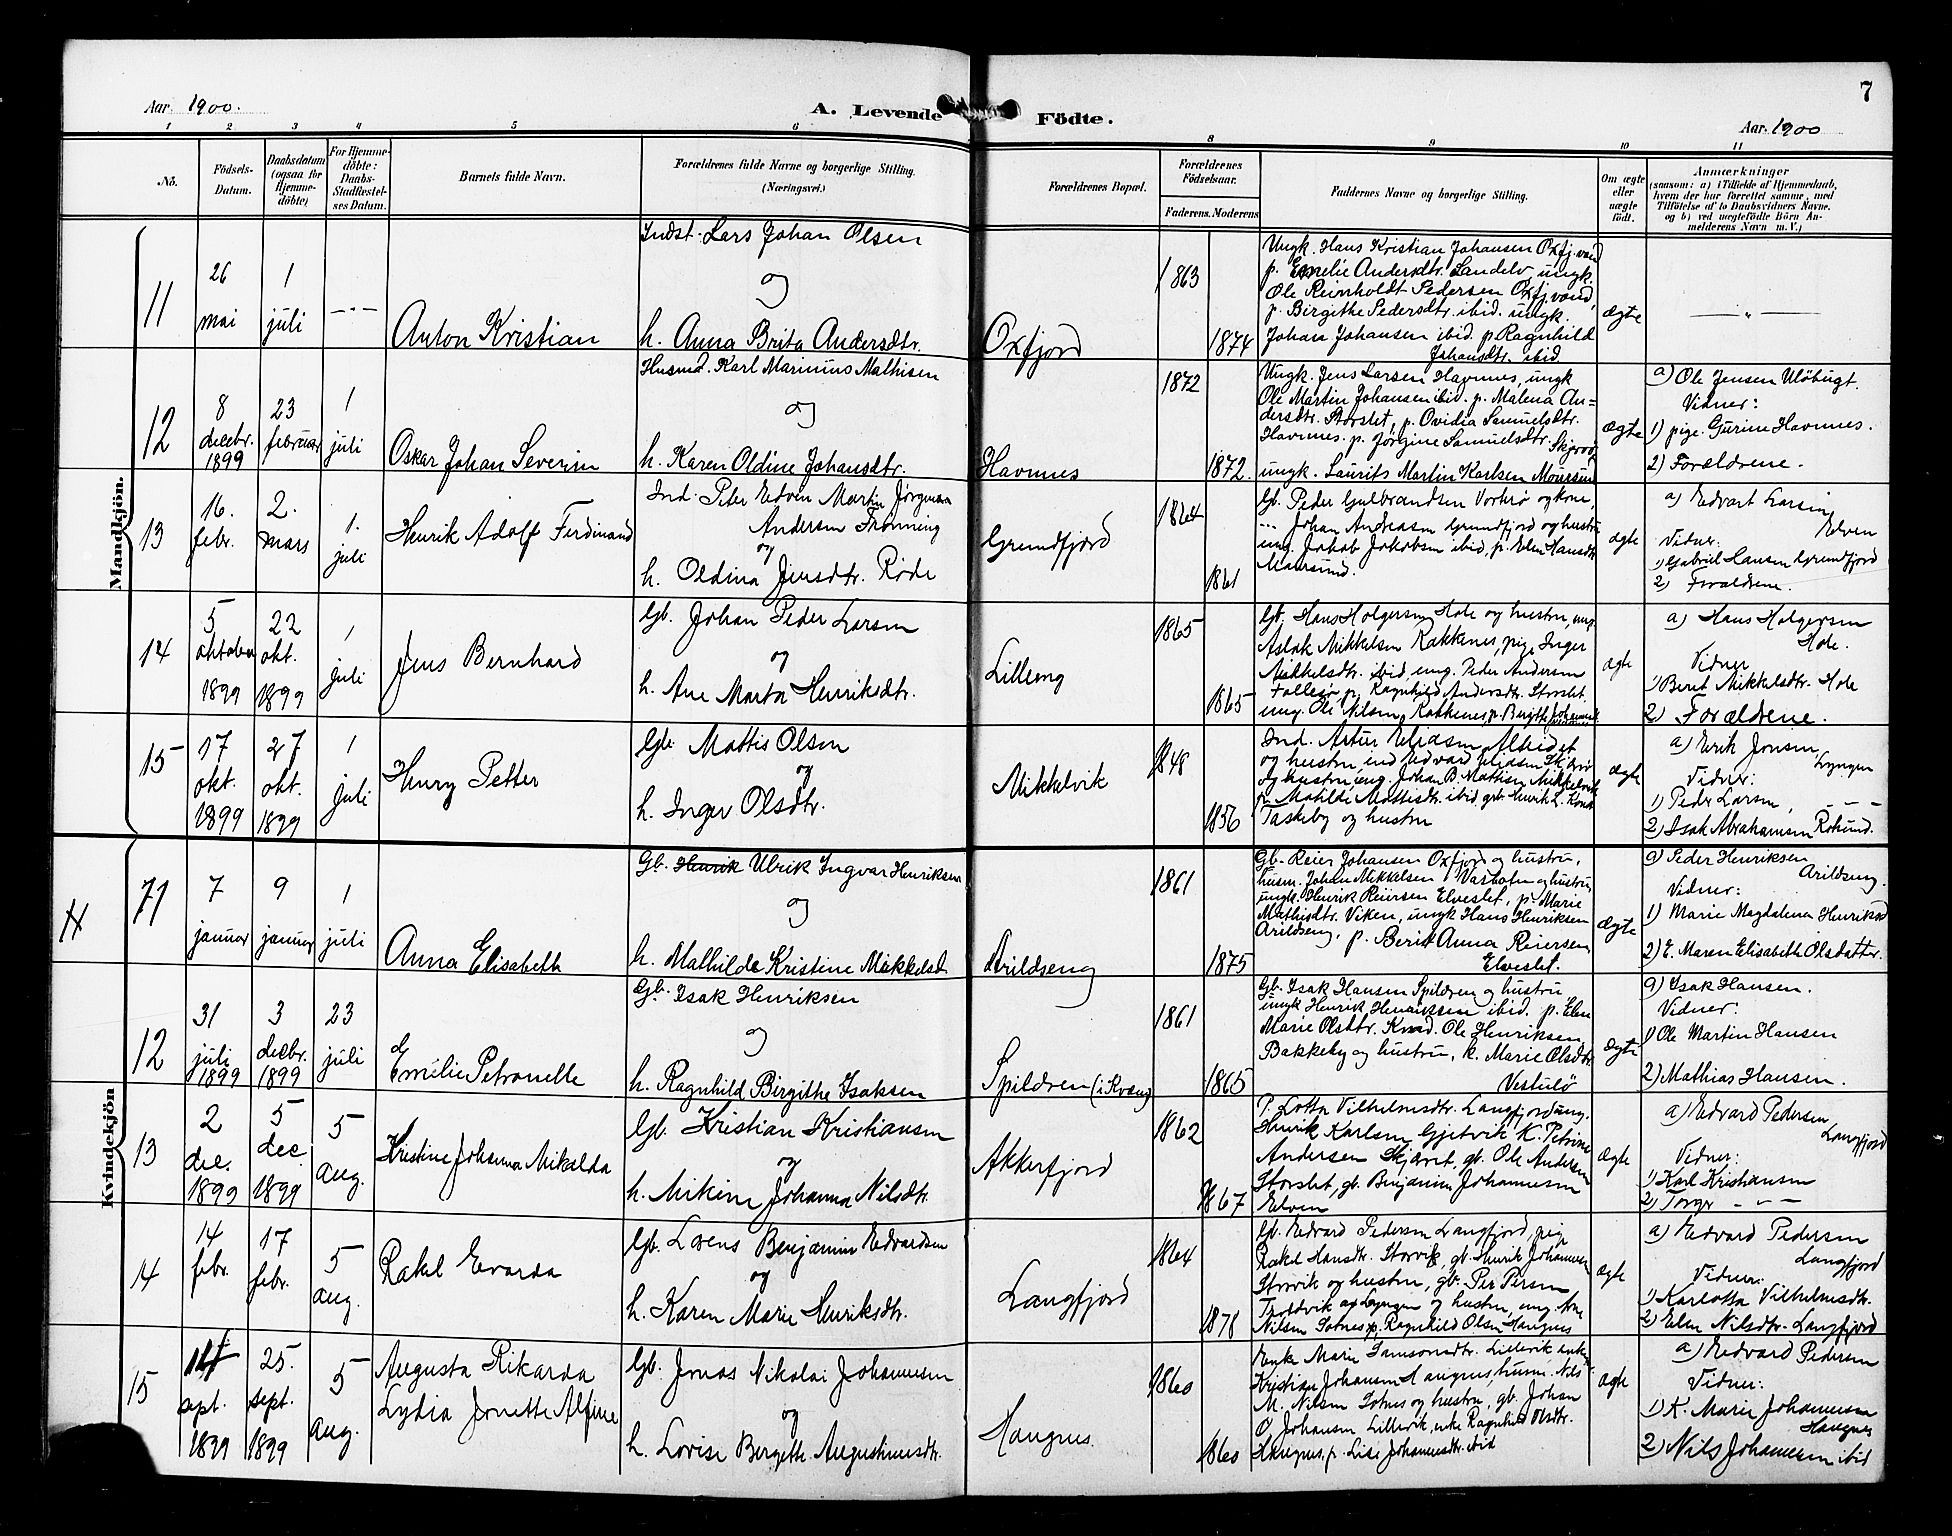 Aar 1900.
A. Levende Födte.
7
Aar. 1900
1 2 3 4 5 6 8 9 10 11
No.
Födsels-
Datum.
Daabsdatum
(ogsaa for
Hjemme-
döbte)
For Hjemme-
döbte:
Daabs-
Stadfæstel-
ses Datum.
Barnets fulde Navn.
Forældrenes fulde Navne og borgerlige Stilling.
(Næringsvei.)
Forældrenes Bopæl.
Forældrenes
Födselsaar.
Faderens. Moderens
Faddernes Navne og borgerlige Stilling.
Om ægte
eller
uægte
födt.
Anmærkninger
(saasom: a) i Tilfælde af Hjemmedaab,
hvem der har forrettet samme, med
Tilföielse af to Daabsvidners Navne,
og b) ved uegtefödte Börn An-
melderens Navn m. V.)
Mandkjön.
11
26
mai
1
juli
Anton Kristian
Indst. Lars Johan Olsen
og
h. Anna Brita Andersdtr.
Oxfjord
1863
1874
Ungk. Hans Kristian Johansen Oxfj.vand
p. Emelie Andersdtr. Landelv, ungk.
Ole Reinholdt Pedersen Oxfj.vand,
p. Birgithe Pedersdtr. ibid. ungk.
Johan Johansen ibid. p Ragnhild
Johansdtr. ibid.
ægte
12
8
decbr.
1899
23
februar
1
juli
Oskar Johan Severin
Husmd. Karl Marinius Mathisen
og
h. Karen Oldine Johansdtr.
Havnnes
1872
1872.
Ungk. Jens Larsen Havnnes, ungk
Ole Martin Johansen ibid. p. Malena An=
dersdtr. Storslet, p. Ovidia Samuelsdtr.
Havnnes. p. Jörgine Samuelsdtr. Skjervö,
ungk. Laurits Martin Karlsen Maursund
ægte
a) Ole Jensen Ulöbugt.
Vidner:
1) pige Gurine Havnnes.
2) Forældrene.
13
16.
febr.
2.
mars
1.
juli
Henrik Adolf Ferdinand
Ind. Peter Edvin Martin Jörgman
Andersen Fronning
og
h. Oldina Jensdtr. Röde
Grundfjord
1864
1861
Gb. Peder Gulbrandsen Vorterö og kone,
Johan Andreasen Grundfjord og hustru
ung. Jakob Jakobsen ibid, p. Elen Hansdtr.
Maursund.
ægte
a) Edvart Larsen
Elven
Vidner:
1) Gabriel Hansen Grundfjord
2) Forældrene.
14
5
oktober
1899
22
okt.
1899
1
juli
Jens Bernhard
Gb. Johan Peder Larsen
og
h. Ane Marta Henriksdtr.
Lilleng
1865
1865
Gb. Hans Holgersen Hole og hustru, ung.
Aslak Mikkelsen Kakkenes, pige Inger
Mikkelsdtr. ibid, ung. Peder Andersen
p. Ragnhild Andersdtr. Storslet
ung. Ole Nilsen Kakkenes, p. Birgithe
ægte
a) Hans Holgersen
Hole.
Vidner
1) Berit Mikkelsdtr. Hole
2) Forældrene.
15
17
okt.
1899
27
okt.
1899
1
juli
Henry Petter
Gb. Mattis Olsen
og
h. Inger Olsdtr.
Mikkelvik
1848
1856
Ind. Artur Eliasen
og hustru ind Edvard Eliasen Skjervö
og hustru, ung. Johan B. Mathisen Mikkelvik
p. Matilde Mattisdtr. ibid gb. Henrik L.
Taskeby og hustru
ægte
a) Erik Jonsen,
Lyngen
Vidner:
1) Peder Larsen,
2) Isak Abrahamsen Rotsund.
Kvindekjön
11
71
7
januar
9
januar
1
juli
Anna Elisabeth
Gb. Henrik Ulrik Ingvar Henriksen
og
h. Mathilde Kristine Mikkelsd.
Arildseng
1861
1875
Gb. Reier Johansen Oxfjord og hustru,
husm. Johan Mikkelsen og hustru,
ungk. Henrik Reiersen Elveslet, p. Marie
Mathisdtr. Viken, ungk Hans Henriksen
Arildseng, p. Berit Anna Reiersen
Elveslet.
ægte
a) Peder Henriksen
Arildseng.
Vidner:
1) Marie Magdalena Henriksd
2) E. Maren Elisabeth Olsdatter.
12
31
juli
1899
3
decbr.
1899
23
juli
Emelie Petronelle
Gb. Isak Henriksen
og
h. Ragnhild Birgithe Isaksen
Spildren (i Kvæn)
1861
1865
Gb. Isak Hansen Spildren og hustru
ungk Henrik Henriksen ibid. p. Elen
Marie Olsdtr. Ole Henriksen
Bakkeby og hustru, k. Marie Olsdtr.
Vestulö
ægte
a) Isak Hansen.
Vidner:
1) Ole Martin Hansen
2) Mathias Hansen.
13
2
dec.
1899
5
dec
1899
5
aug.
Kristine Johanna Mikalda
Gb. Kristian Kristiansen
og
h. Mikine Johanna Nilsdtr.
Akkerfjord
1862
1867
P. Lotta Vilhelmsdtr. Langfjord ung.
Henrik Karlsen Gjetvik K. Petrine
Andersen Skjæret, gb. Ole Andersen
Storslet, gb. Benjamin Johannesen
Elven
ægte
a) Edvard Pedersen
Langfjord
Vidner:
1) Karl Kristiansen
2) Torger
14
14
febr.
17
febr.
5
aug.
Rakel Evarda
Gb. Lorens Benjamin Edvardsen
og
h. Karen Marie Henriksdtr.
Langfjord
1864
1878
Gb. Edvard Pedersen Langfjord, pige
Rakel Hansdtr. Storvik, gb. Henrik Johannesen
Storvik og hustru, gb. Per Persen
Troldvik og hustru, ung.
Nilsen Sotnes, p. Ragnhild Olsen Haugnes
ægte
a) Edvard Pedersen
Langfjord
Vidner:
1) Karlotta Vilhelmsdtr.
2) Elen Nilsdtr. Langfjord
15
14
sept.
1899
25.
sept.
1899
5
aug.
Augusta Rikarda
Lydia Jonette Alfine
Gb. Jonas Nikolai Johannesen
og
h. Lovise Bergette Augustinusdtr.
Haugnes.
1860
1860
Enke Marie Samsonsdtr. Lillevik enkem.
Kristian Johansen Haugnes, husm. Nils
M. Nilsen Sotnes og hustru, gb. Johan
O. Johansen Lillevik, enke Ragnhild Olsdtr.
Haugnes, p. Lise Johannesdtr. ibid
ægte
a) Edvard Pedersen
Vidner:
1) K. Marie Johannesen
Haugnes
2) Nils Johannesen ibid